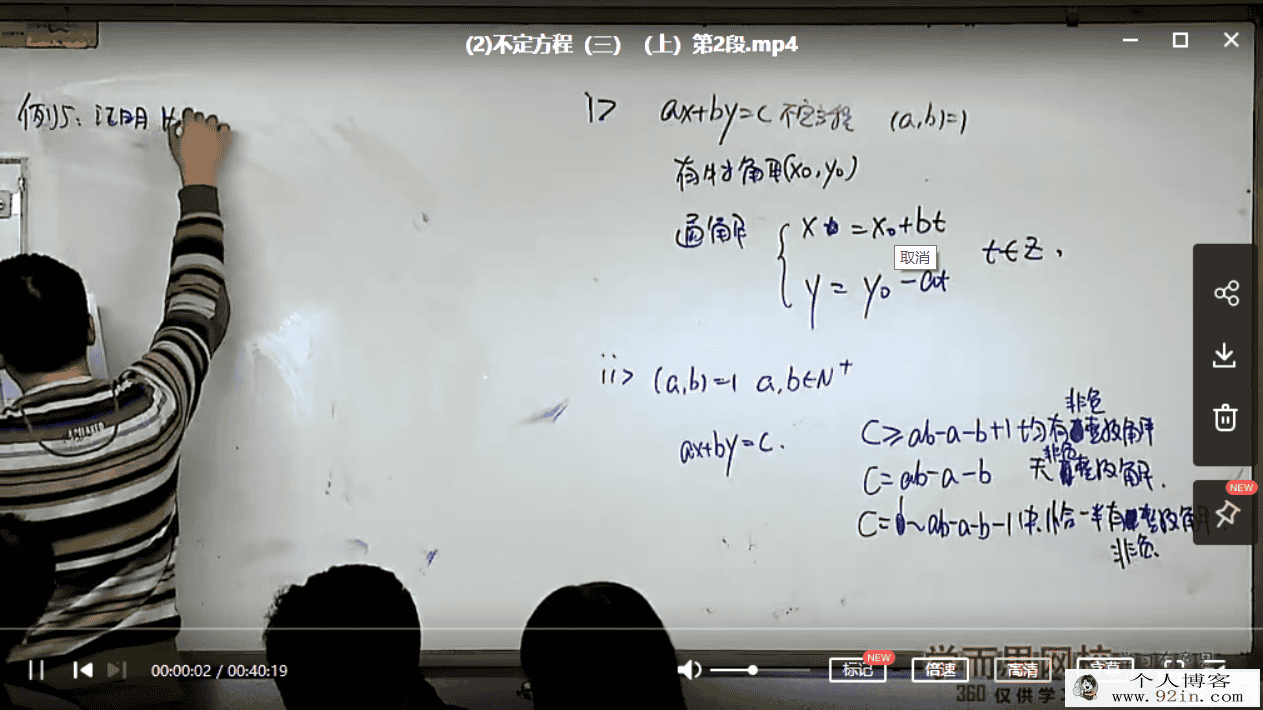 (2)不定方程（三）（上）第2段.mp4
例5: 证明
i> ax+by=c 不定方程 (a,b)=1
有特解(x0,y0)
通解 { x = x0+bt
取消
y = y0-at
t∈Z,
ii> (a,b)=1 a,b∈N+
ax+by=c.
非负
C≥ab-a-b+1 均有整数解
非负
C=ab-a-b 无整数解.
C=0~ab-a-b-1中,恰一半有整数解
非负
NEW
00:00:02 / 00:40:19
NEW
标记
倍速
高清
学而思网校
360 仅供学
个人博客
www.92in.com